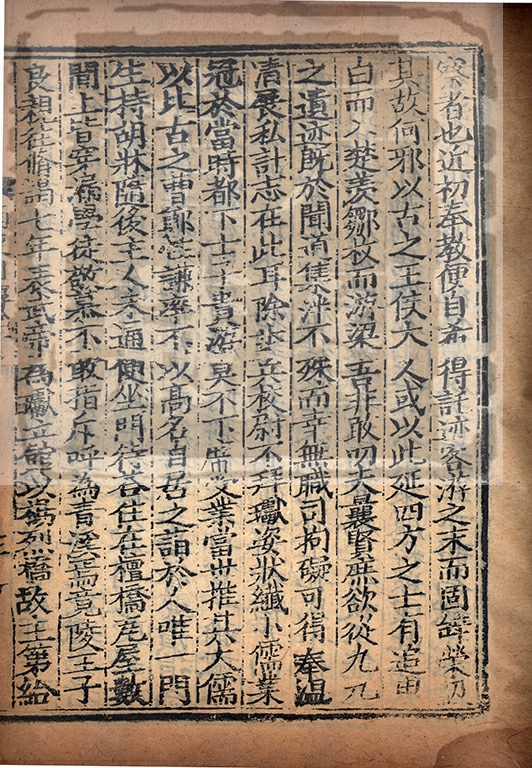 察者也近初奉教便自希得託迹客游之末而固辭榮級
其故何邪以古之王侯大人或以此延四方之士有追申
白而入楚羨鄒枚而游梁吾非敢叨夫曩賢庶欲從九九
之遺迹既於聞道集泮不殊而幸無職司拘礙可得奉溫
凊展私計志在此耳除步兵校尉不拜瓛姿狀纖小儒業
冠於當時都下士子貴游莫不下席受業當世推其大儒
以比古之曹鄭性謙率不以高名自居之詣於人唯一門
生持胡牀隨後主人未通便坐門待答住在檀橋瓦屋數
間上皆穿漏學徒敬慕不敢指斥呼為青溪焉竟陵王子
良親往脩謁七年表武帝為瓛立館以楊烈橋故主第給